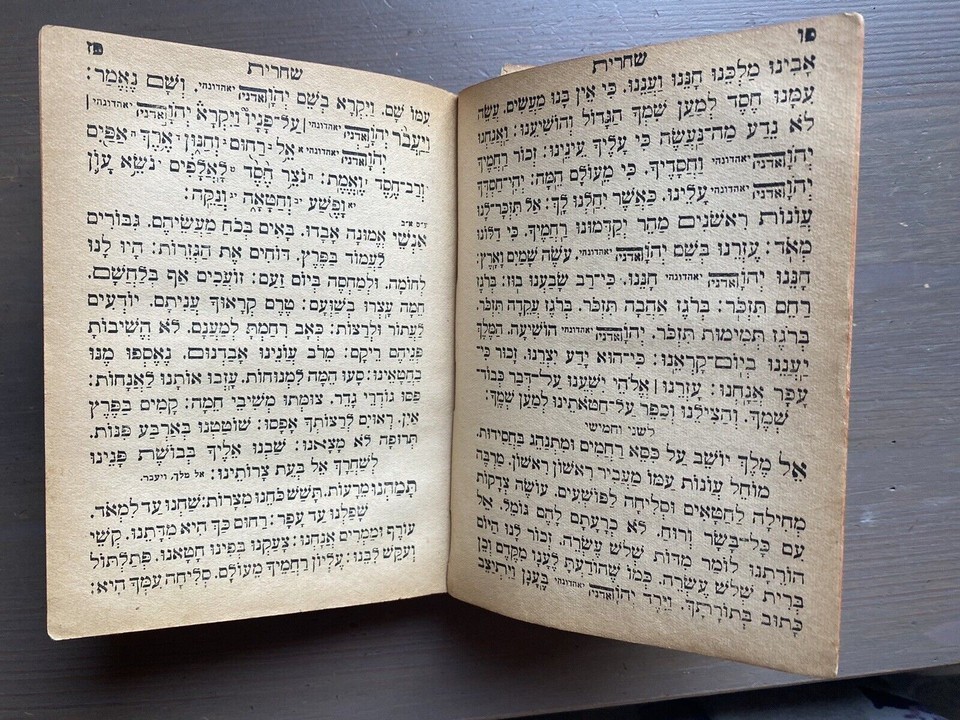 פו
שחרית
אָבִינוּ מַלְכֵּנוּ חָנֵּנוּ וַעֲנֵנוּ. כִּי אֵין בָּנוּ מַעֲשִׂים. עֲשֵׂה
עִמָּנוּ חֶסֶד לְמַעַן שִׁמְךָ הַגָּדוֹל וְהוֹשִׁיעֵנוּ: וַאֲנַחְנוּ
לֹא נֵדַע מַה־נַּעֲשֶׂה כִּי עָלֶיךָ עֵינֵינוּ: זְכוֹר רַחֲמֶיךָ
יְהֹוָה ואדניה יאהדונהי וַחֲסָדֶיךָ. כִּי מֵעוֹלָם הֵמָּה: יְהִי־חַסְדְּךָ
יְהֹוָה ואדניה יאהדונהי עָלֵינוּ. כַּאֲשֶׁר יִחַלְנוּ לָךְ: אַל תִּזְכָּר־לָנוּ
עֲוֹנוֹת רִאשֹׁנִים מַהֵר יְקַדְּמוּנוּ רַחֲמֶיךָ. כִּי דַלּוֹנוּ
מְאֹד: עֶזְרֵנוּ בְּשֵׁם יְהֹוָה ואדניה יאהדונהי. עֹשֵׂה שָׁמַיִם וָאָרֶץ:
חָנֵּנוּ יְהֹוָה ואדניה יאהדונהי חָנֵּנוּ. כִּי־רַב שָׂבַעְנוּ בוּז: בְּרֹגֶז
רַחֵם תִּזְכֹּר: בְּרֹגֶז אַהֲבָה תִּזְכֹּר. בְּרֹגֶז עֲקֵדָה תִּזְכֹּר.
בְּרֹגֶז תְּמִימוּת תִּזְכֹּר. יְהֹוָה ואדניה יאהדונהי הוֹשִׁיעָה. הַמֶּלֶךְ
יַעֲנֵנוּ בְיוֹם־קָרְאֵנוּ: כִּי־הוּא יָדַע יִצְרֵנוּ. זָכוּר כִּי־
עָפָר אֲנָחְנוּ: עָזְרֵנוּ | אֱלֹהֵי יִשְׁעֵנוּ עַל־דְּבַר כְּבוֹד־
שְׁמֶךָ. וְהַצִּילֵנוּ וְכַפֵּר עַל־חַטֹּאתֵינוּ לְמַעַן שְׁמֶךָ:
לשני וחמישי
אֵל מֶלֶךְ יוֹשֵׁב עַל כִּסֵּא רַחֲמִים וּמִתְנַהֵג בַּחֲסִידוּת.
מוֹחֵל עֲוֹנוֹת עַמּוֹ מַעֲבִיר רִאשׁוֹן רִאשׁוֹן. מַרְבֶּה
מְחִילָה לַחַטָּאִים וּסְלִיחָה לַפּוֹשְׁעִים. עוֹשֶׂה צְדָקוֹת
עִם כָּל־בָּשָׂר וְרוּחַ. לֹא כְרָעָתָם לָהֶם גּוֹמֵל. אֵל
הוֹרֵתָנוּ לוֹמַר מִדּוֹת שְׁלֹשׁ עֶשְׂרֵה. זְכוֹר לָנוּ הַיּוֹם
בְּרִית שְׁלֹשׁ עֶשְׂרֵה. כְּמוֹ שֶׁהוֹדַעְתָּ לֶעָנָו מִקֶּדֶם וְכֵן
כָּתוּב בְּתוֹרָתָךְ. וַיֵּרֶד יְהֹוָה ואדניה יאהדונהי בֶּעָנָן וַיִּתְיַצֵּב
פז
שחרית
עִמּוֹ שָׁם. וַיִּקְרָא בְשֵׁם יְהֹוָה ואדניה יאהדונהי. וְשָׁם נֶאֱמַר:
וַיַּעֲבֹר יְהֹוָה ואדניה יאהדונהי | עַל־פָּנָיו וַיִּקְרָא יְהֹוָה ואדניה יאהדונהי |
יְהֹוָה ואדניה יאהדונהי א אֵל ב רַחוּם ג וְחַנּוּן ד אֶרֶךְ ה אַפַּיִם
ו וְרַב־חֶסֶד ז וֶאֱמֶת: ח נֹצֵר חֶסֶד ט לָאֲלָפִים י נֹשֵׂא עָוֹן
יא וָפֶשַׁע יב וְחַטָּאָה יג וְנַקֵּה:
ע״פ א״ב
אַנְשֵׁי אֱמוּנָה אָבָדוּ. בָּאִים בְּכֹחַ מַעֲשֵׂיהֶם. גִּבּוֹרִים
לַעֲמוֹד בַּפֶּרֶץ. דּוֹחִים אֶת הַגְּזֵרוֹת: הָיוּ לָנוּ
לְחוֹמָה. וּלְמַחְסֶה בְּיוֹם זַעַם: זוֹעֲכִים אַף בְּלַחֲשָׁם.
חֵמָה עָצְרוּ בְּשַׁוְעָם: טֶרֶם קְרָאוּךָ עֲנִיתָם. יוֹדְעִים
לַעֲתוֹר וּלְרַצּוֹת: כְּאָב רִחַמְתָּ לְמַעֲנָם. לֹא הֱשִׁיבוֹתָ
פְנֵיהֶם רֵיקָם: מֵרֹב עֲוֹנֵינוּ אֲבַדְנוּם. נֶאֶסְפוּ מֶנּוּ
בַּחֲטָאֵינוּ: סָעוּ הֵמָּה לִמְנוּחוֹת. עָזְבוּ אוֹתָנוּ לַאֲנָחוֹת:
פַּסּוּ גּוֹדְרֵי גָדֵר. צוּמְּתוּ מְשִׁיבֵי חֵמָה: קָמִים בַּפֶּרֶץ
אַיִן. רְאוּיִם לְרַצּוֹתְךָ אָפֵסוּ: שׁוֹטַטְנוּ בְּאַרְבַּע פִּנּוֹת.
תְּרוּפָה לֹא מָצָאנוּ: שַׁבְנוּ אֵלֶיךָ בְּבוֹשֶׁת פָּנֵינוּ
לְשַׁחֲרָךְ אֵל בְּעֵת צָרוֹתֵינוּ: אל מלך. ויעבר.
תָּמַהְנוּ מֵרָעוֹת. תָּשַׁשׁ כֹּחֵנוּ מִצָּרוֹת: שַׁחְנוּ עַד לִמְאֹד.
שָׁפַלְנוּ עַד עָפָר: רַחוּם כָּךְ הִיא מִדָּתֵנוּ. קְשֵׁי
עוֹרֶף וּמַמְרִים אֲנַחְנוּ: צָעַקְנוּ בְּפִינוּ חָטָאנוּ. פְּתַלְתּוֹל
וְעִקֵּשׁ לִבֵּנוּ: עֶלְיוֹן רַחֲמֶיךָ מֵעוֹלָם. סְלִיחָה עִמְּךָ הִיא: